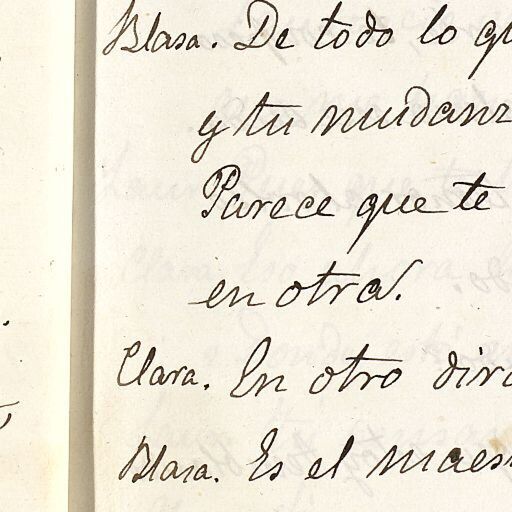 Blasa. De todo lo qu
y tu mudanz
Parece que te
en otra.
Clara. En otro dirá
Blasa. Es el maes